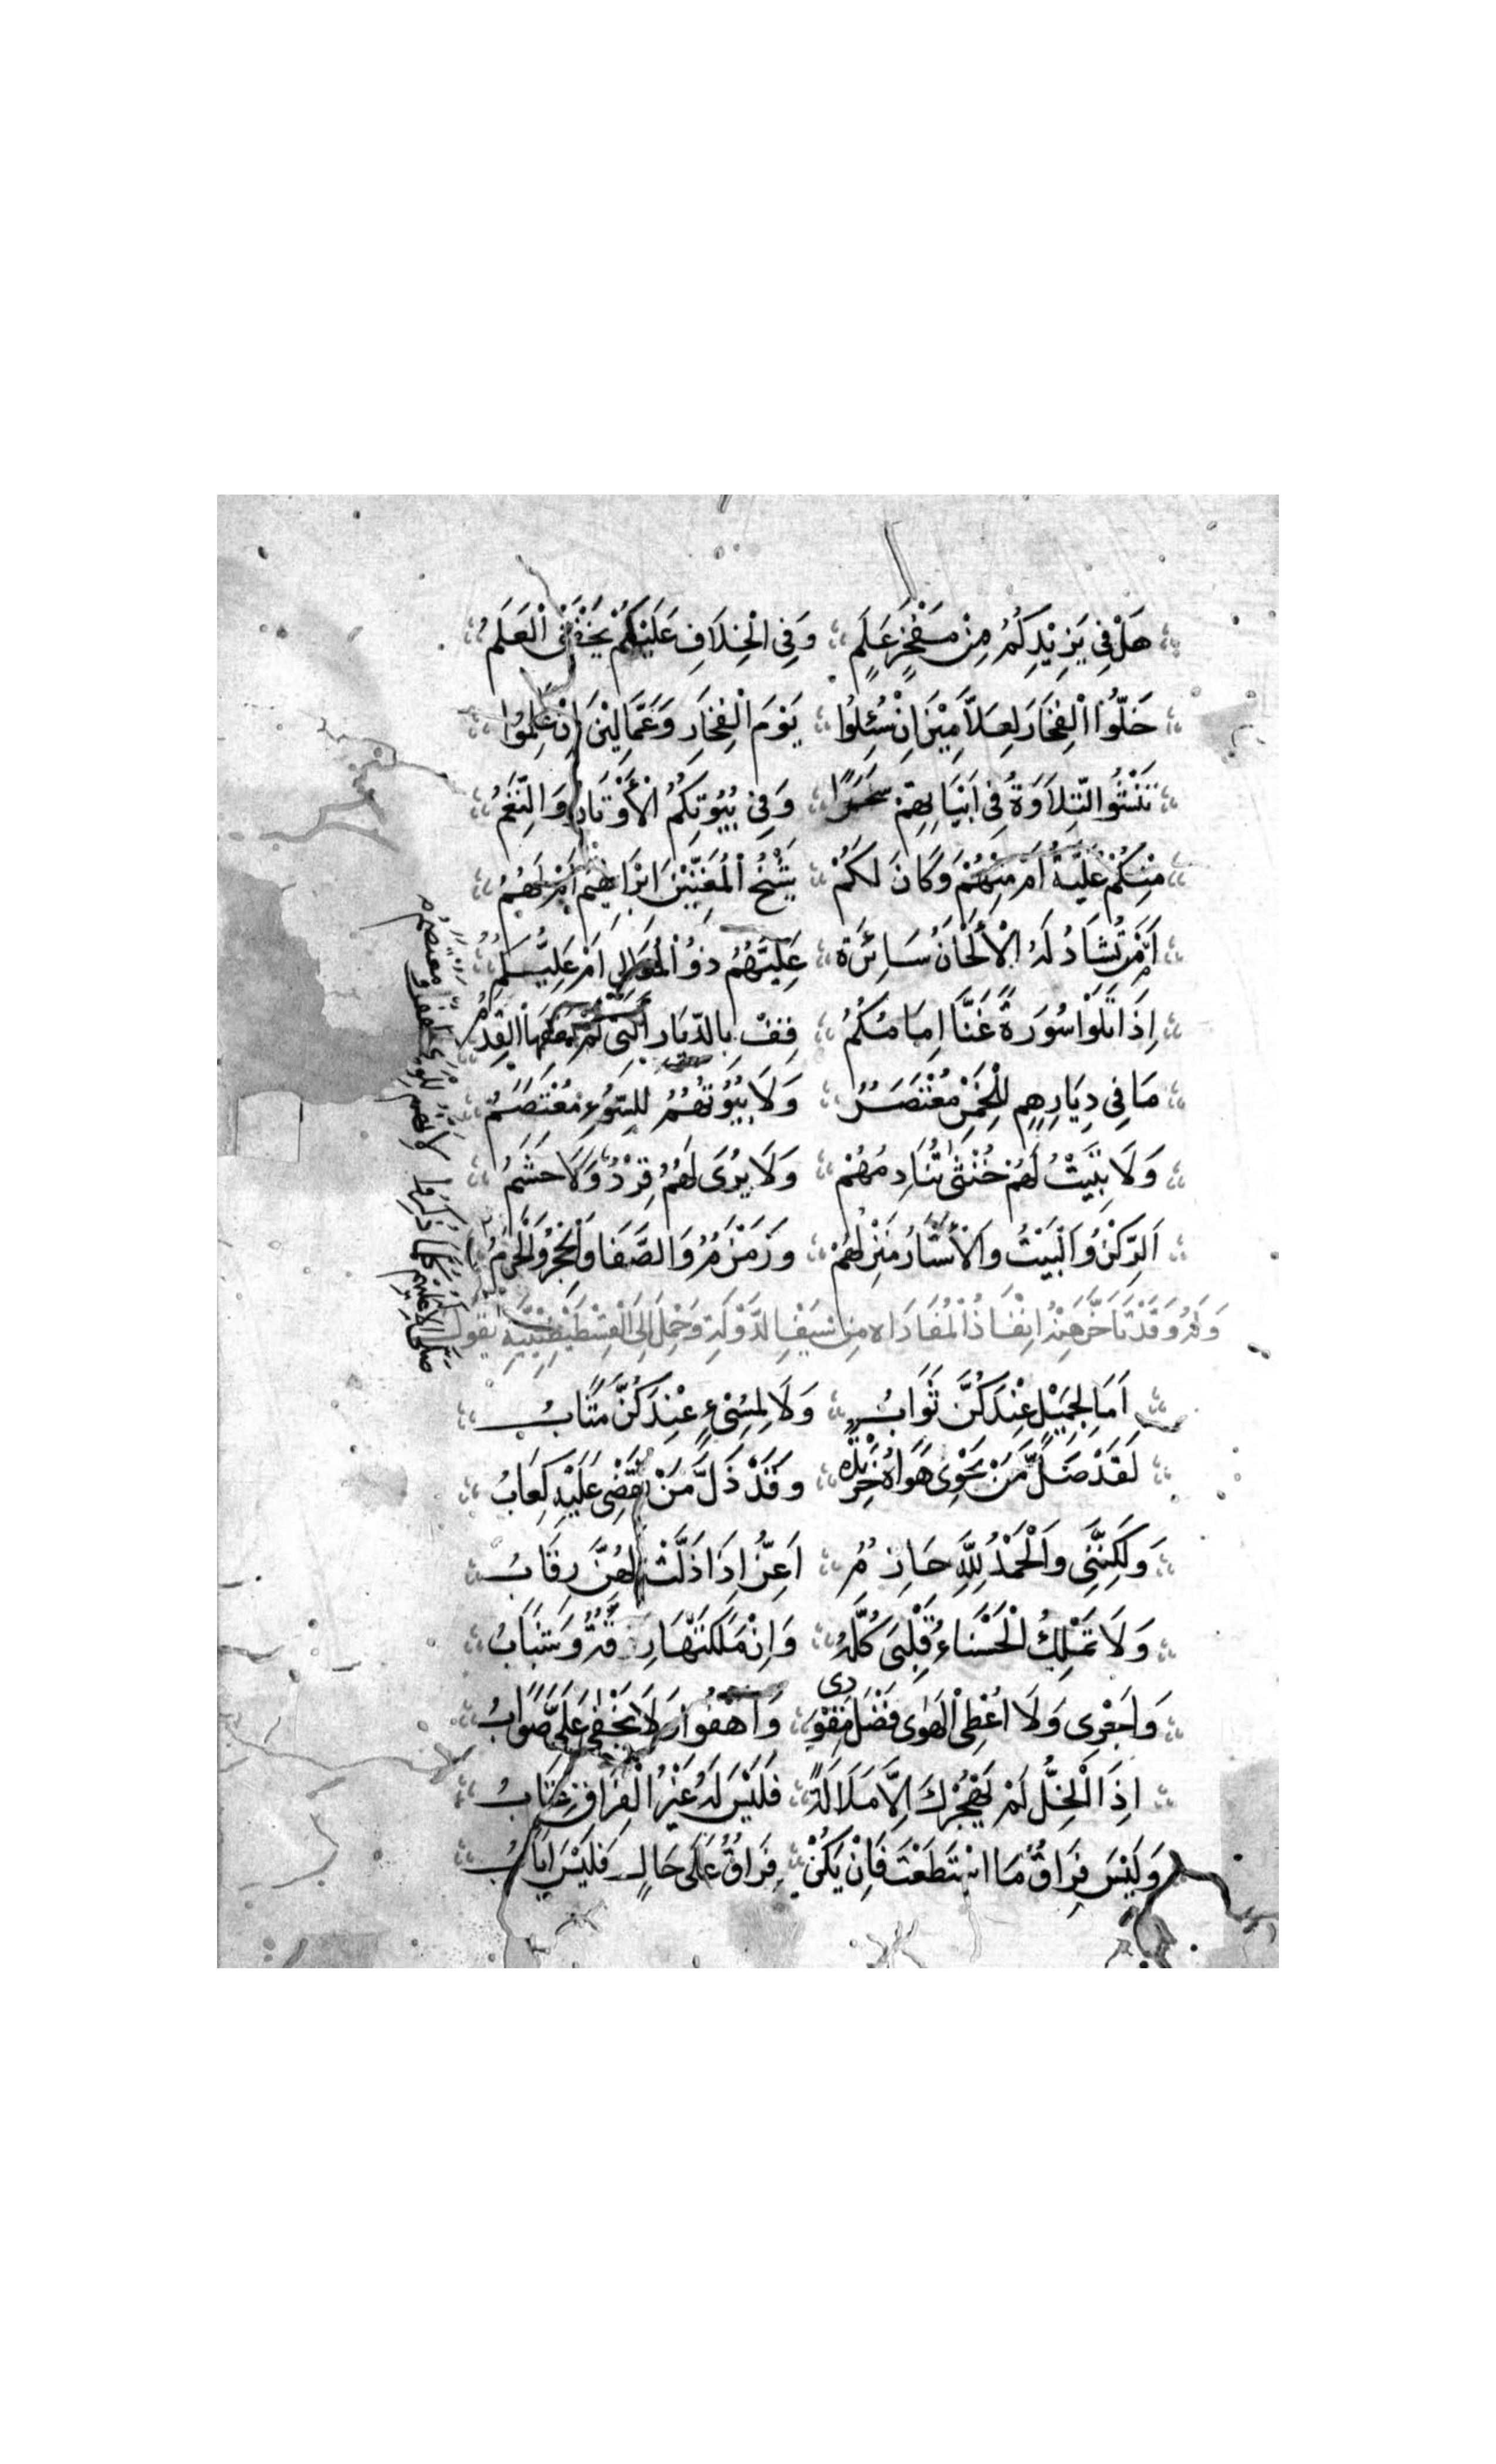 هَلْ فِي يَزِيْدِكُمُ مِنْ مَفْخَرٍ عَلَمٍ وَفِي الْخِلَافِ عَلَيْكُمْ يَخْفَقُ الْعَلَمُ
خَلُّوا الْفِخَارَ لِعِلَّامِيْنَ اِنْ سُئِلُوا يَوْمَ الْفِخَارِ وَعَمَّالِيْنَ اِنْ عَلِمُوا
تَنْشُو التِّلَاوَةُ فِي اَبْيَاتِهِمْ سَحَرًا وَفِي بُيُوتِكُمُ الْأَوْتَارُ وَالنَّغَمُ
مِنْكُمْ عُلَيَّةُ اَمْ مِنْهُمْ وَكَانَ لَكُمْ شَيْخُ الْمُغَنِّيْنَ اِبْرَاهِيْمُ اَمْ لَهُمُ
اَمَّنْ تُشَادُ لَهُ الْأَلْحَانُ سَائِرَةً عَلَيْهُمُ ذُو الْمَعَالِي اَمْ عَلَيْكُمُ
اِذَا تَلَوْا سُورَةً غَنَّا اِمَامُكُمُ قِفْ بِالدِّيَارِ الَّتِي لَمْ يَعْفُهَا الْقِدَمُ
مَا فِي دِيَارِهِمِ لِلْخَمْرِ مُعْتَصَرُ وَلَا بُيُوتُهُمُ لِلسُّوءِ مُعْتَصَمُ
وَلَا تَبِيْتُ لَهُمْ خُنْثَى تُنَادِمُهُمْ وَلَا يُرَى لَهُمُ قِرْدٌ وَلَا حَشَمُ
اَلرُّكْنُ وَالْبَيْتُ وَالْأَسْتَارُ مَنْزِلُهُمْ وَزَمْزَمُ وَالصَّفَا وَالْحِجْرُ وَالْحَرَمُ
وَلَهُ وَقَدْ تَأَخَّرَ عَنْهُ اِنْفَاذُ الْمُفَادَاه مِنْ سَيْفِ الدَّوْلَةِ وَحُمِلَ اِلَى الْقِسْطَنْطِيْنِيَّةِ يَقُولُ
اَمَا لِجَمِيْلٍ عِنْدَكُنَّ ثَوَابُ وَلَا لِمُسِيْءٍ عِنْدَكُنَّ مَتَابُ
لَقَدْ ضَلَّ مَنْ تَحْوِي هَوَاهُ خَرِيْدَةٌ وَقَدْ ذَلَّ مَنْ تَقْضِي عَلَيْهِ كِعَابُ
وَلَكِنَّنِي وَالْحَمْدُ لِلَّهِ حَازِمُ اَعِزُّ اِذَا ذَلَّتْ لَهُنَّ رِقَابُ
وَلَا تَمْلِكُ الْحَسْنَاءُ قَلْبِيَ كُلَّهُ وَاِنْ مَلَكَتْهَا رِقَّةٌ وَشَبَابُ
وَاَجْرِي وَلَا اُعْطِي الْهَوَى فَضْلَ مِقْوَدِي وَاَهْفُو وَلَا يَخْفَى عَلَيَّ صَوَابُ
اِذَا الْخِلُّ لَمْ يَهْجُرْكَ اِلَّا مَلَالَةً فَلَيْسَ لَهُ غَيْرُ الْفِرَاقِ عِتَابُ
وَلَيْسَ فِرَاقٌ مَا اسْتَطَعْتَ فَاِنْ يَكُنْ فِرَاقٌ عَلَى حَالٍ فَلَيْسَ اِيَابُ